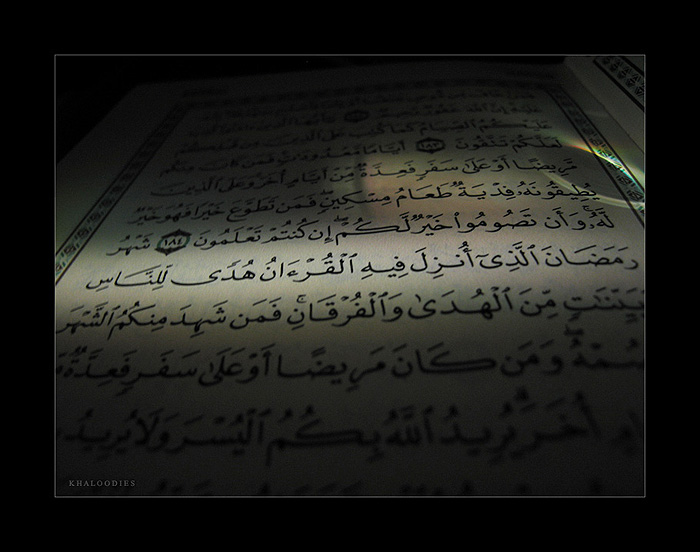 عَلَيْهِ إِنَّ ٱللَّهَ غَفُورٌ رَّحِيمٌ يَٰٓأَيُّهَا ٱلَّذِينَ
عَلَيْكُمُ ٱلصِّيَامُ كَمَا كُتِبَ عَلَى ٱلَّذِينَ مِن قَبْلِكُمْ
لَعَلَّكُمْ تَتَّقُونَ ١٨٣ أَيَّامًا مَّعْدُودَٰتٍ فَمَن كَانَ مِنكُم
مَّرِيضًا أَوْ عَلَىٰ سَفَرٍ فَعِدَّةٌ مِّنْ أَيَّامٍ أُخَرَ وَعَلَى ٱلَّذِينَ
يُطِيقُونَهُۥ فِدْيَةٌ طَعَامُ مِسْكِينٍ فَمَن تَطَوَّعَ خَيْرًا فَهُوَ خَيْرٌ
لَّهُۥ وَأَن تَصُومُوا۟ خَيْرٌ لَّكُمْ إِن كُنتُمْ تَعْلَمُونَ ١٨٤ شَهْرُ
رَمَضَانَ ٱلَّذِىٓ أُنزِلَ فِيهِ ٱلْقُرْءَانُ هُدًى لِّلنَّاسِ
بَيِّنَٰتٍ مِّنَ ٱلْهُدَىٰ وَٱلْفُرْقَانِ ۚ فَمَن شَهِدَ مِنكُمُ ٱلشَّهْرَ
صُمْهُ ۖ وَمَن كَانَ مَرِيضًا أَوْ عَلَىٰ سَفَرٍ فَعِدَّةٌ
أُخَرَ ۗ يُرِيدُ ٱللَّهُ بِكُمُ ٱلْيُسْرَ وَلَا يُرِيدُ
KHALOODIES